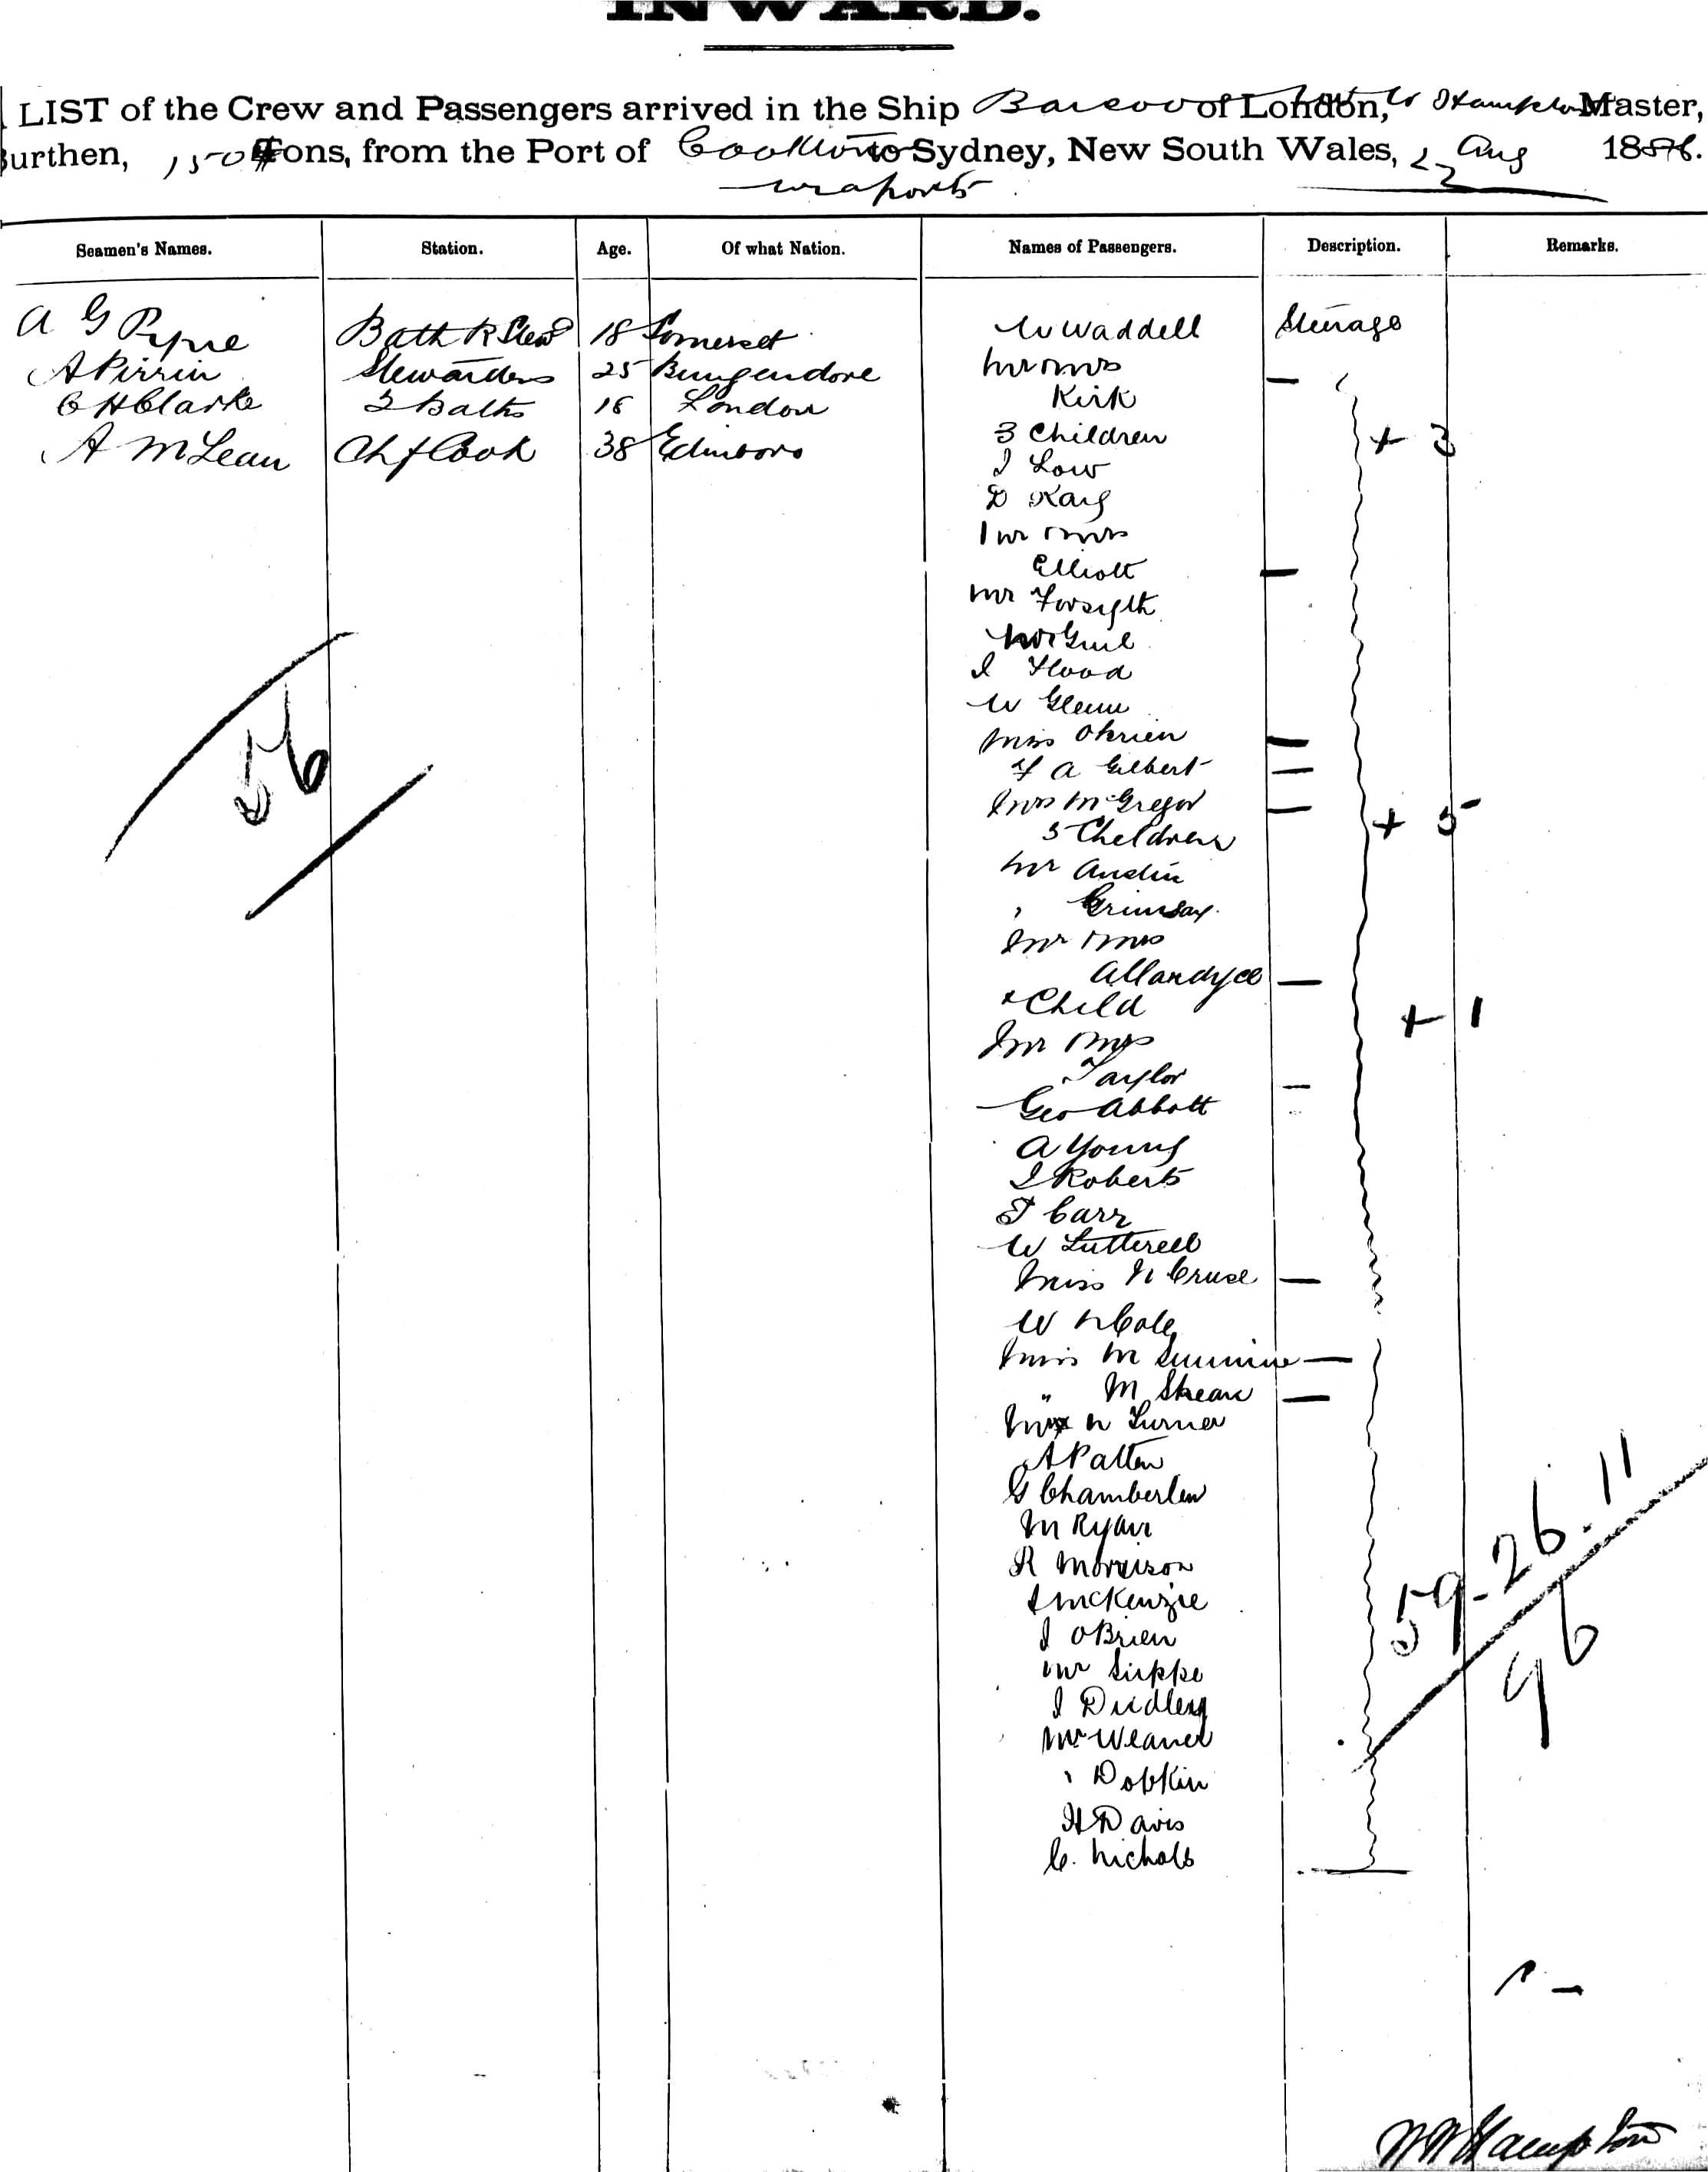 INWARD.
LIST of the Crew and Passengers arrived in the Ship Barcoo of London, Hampton Master,
Burthen, 1505 Tons, from the Port of Cooktown to Sydney, New South Wales, 22 Aug 1886.
via ports
Seamen's Names. Station. Age. Of what Nation. Names of Passengers. Description. Remarks.
A G Pyne Bath R Stewd 18 Somerset W Waddell Steerage
A Pirrin Stewardess 25 Bungendore Mr & Mrs
C H Clarke 2 Baths 18 London Kirk
3 Children + 3
A McLean Chf Cook 38 Edinboro
J Low
D Kay
Mr & Mrs
Elliott
Mr Forsyth
J Flood
W Glenn
Miss OBrien
F A Gilbert
Mrs McGregor
5 Children + 5
Mr Austin
" Grimsay
Mr & Mrs
Allardyce
& Child + 1
Mr & Mrs
Taylor
Geo Abbott
A Young
J Roberts
T Carr
W Lutterell
Miss N Cruse
W N Cole
Miss M
" M Skean
Mr W Turner
A Patten
G Chamberlen
M Ryan
R Morrison
J McKenzie
J OBrien
Mr
J Dudley
Mr Weaver
" Dobkin
H Davis
C. Nichols
56
59-26.11
96
W N Hampton